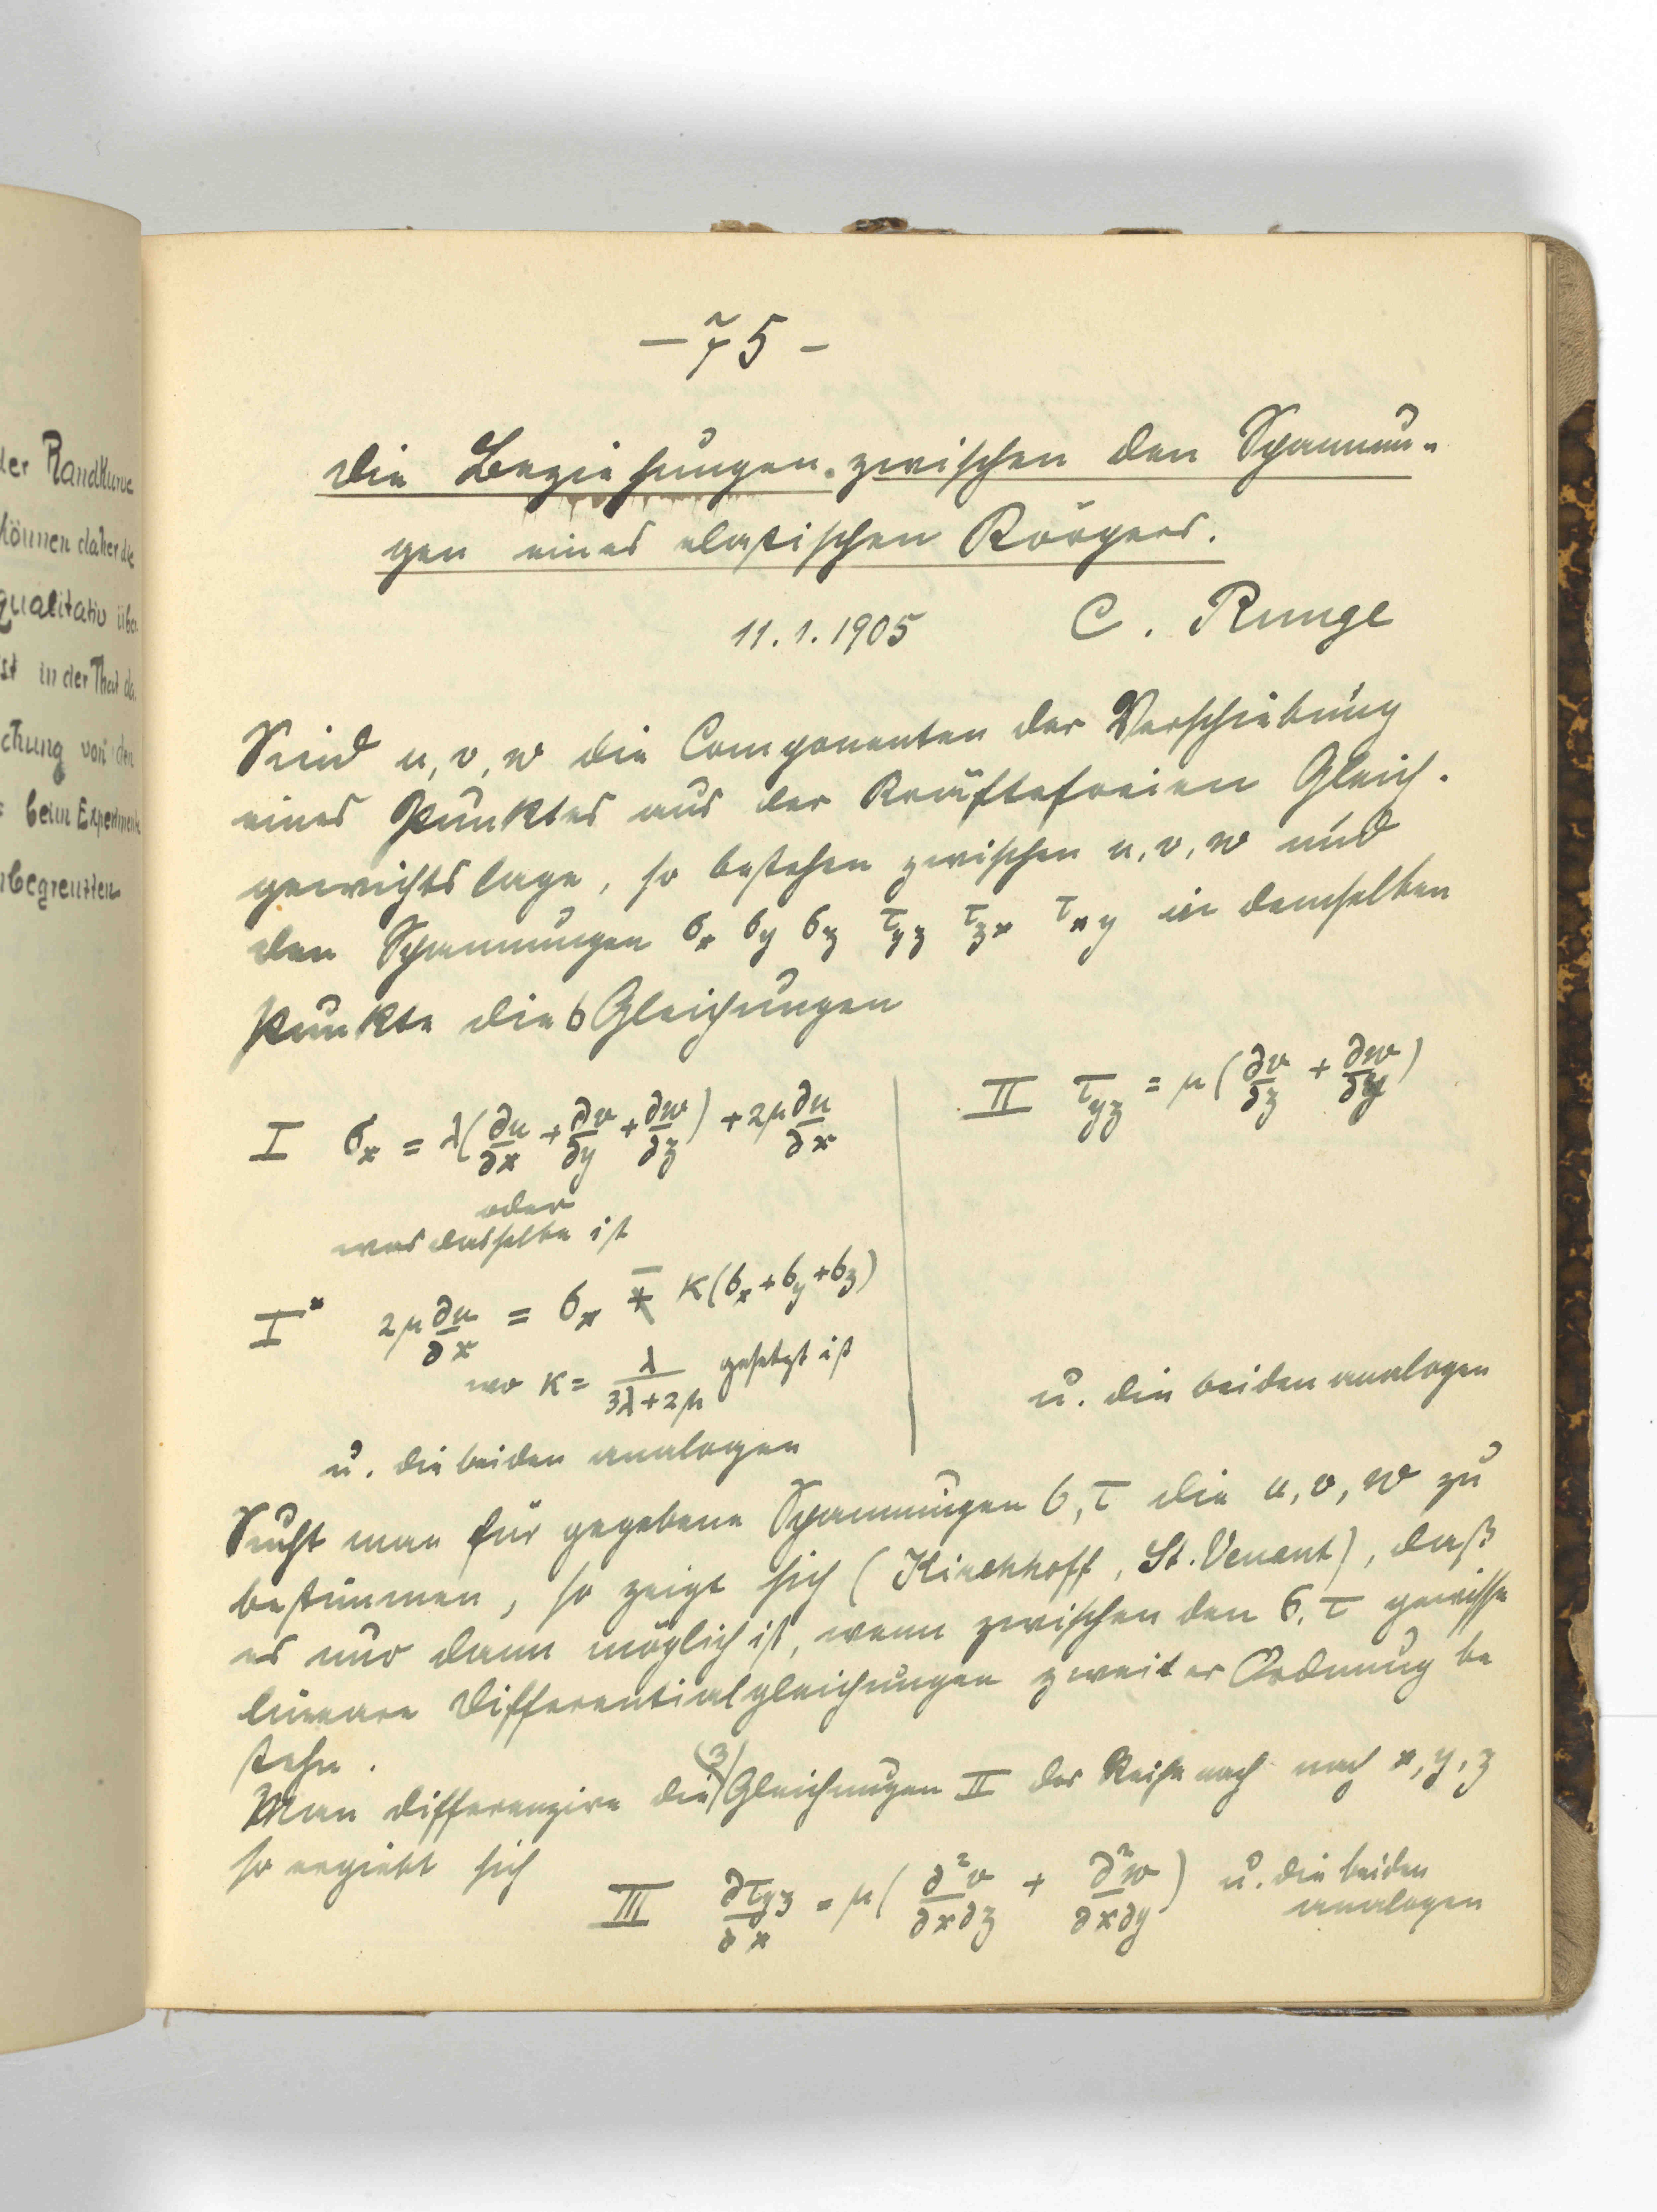 der Randkurve
können daher die
qualitativ über
ist in der That da
chung von den
beim Experimente
begrenzten
— 75 —
Die Beziehungen zwischen den Spannun-
gen eines elastischen Körpers.
11. 1. 1905 C. Runge
Sind u, v, w die Componenten der Verschiebung
eines Punktes aus der kräftefreien Gleich-
gewichtslage, so bestehen zwischen u, v, w und
den Spannungen σx σy σz τyz τzx τxy in demselben
Punkte die 6 Gleichungen
I σx = λ(∂u/∂x + ∂v/∂y + ∂w/∂z) + 2μ ∂u/∂x
II τyz = μ(∂v/∂z + ∂w/∂y)
oder
was dasselbe ist
I* 2μ ∂u/∂x = σx − κ(σx + σy + σz)
wo κ = λ/(3λ+2μ) gesetzt ist
u. die beiden analogen
u. die beiden analogen
Sucht man für gegebene Spannungen σ, τ die u, v, w zu
bestimmen, so zeigt sich (Kirchhoff, St. Venant), daß
es nur dann möglich ist, wenn zwischen den σ, τ gewisse
lineare Differentialgleichungen zweiter Ordnung be
stehn.
Man differenzire die 3 Gleichungen II der Reihe nach nach x, y, z
so ergiebt sich
III ∂τyz/∂x = μ(∂²v/∂x∂z + ∂²w/∂x∂y) u. die beiden
analogen